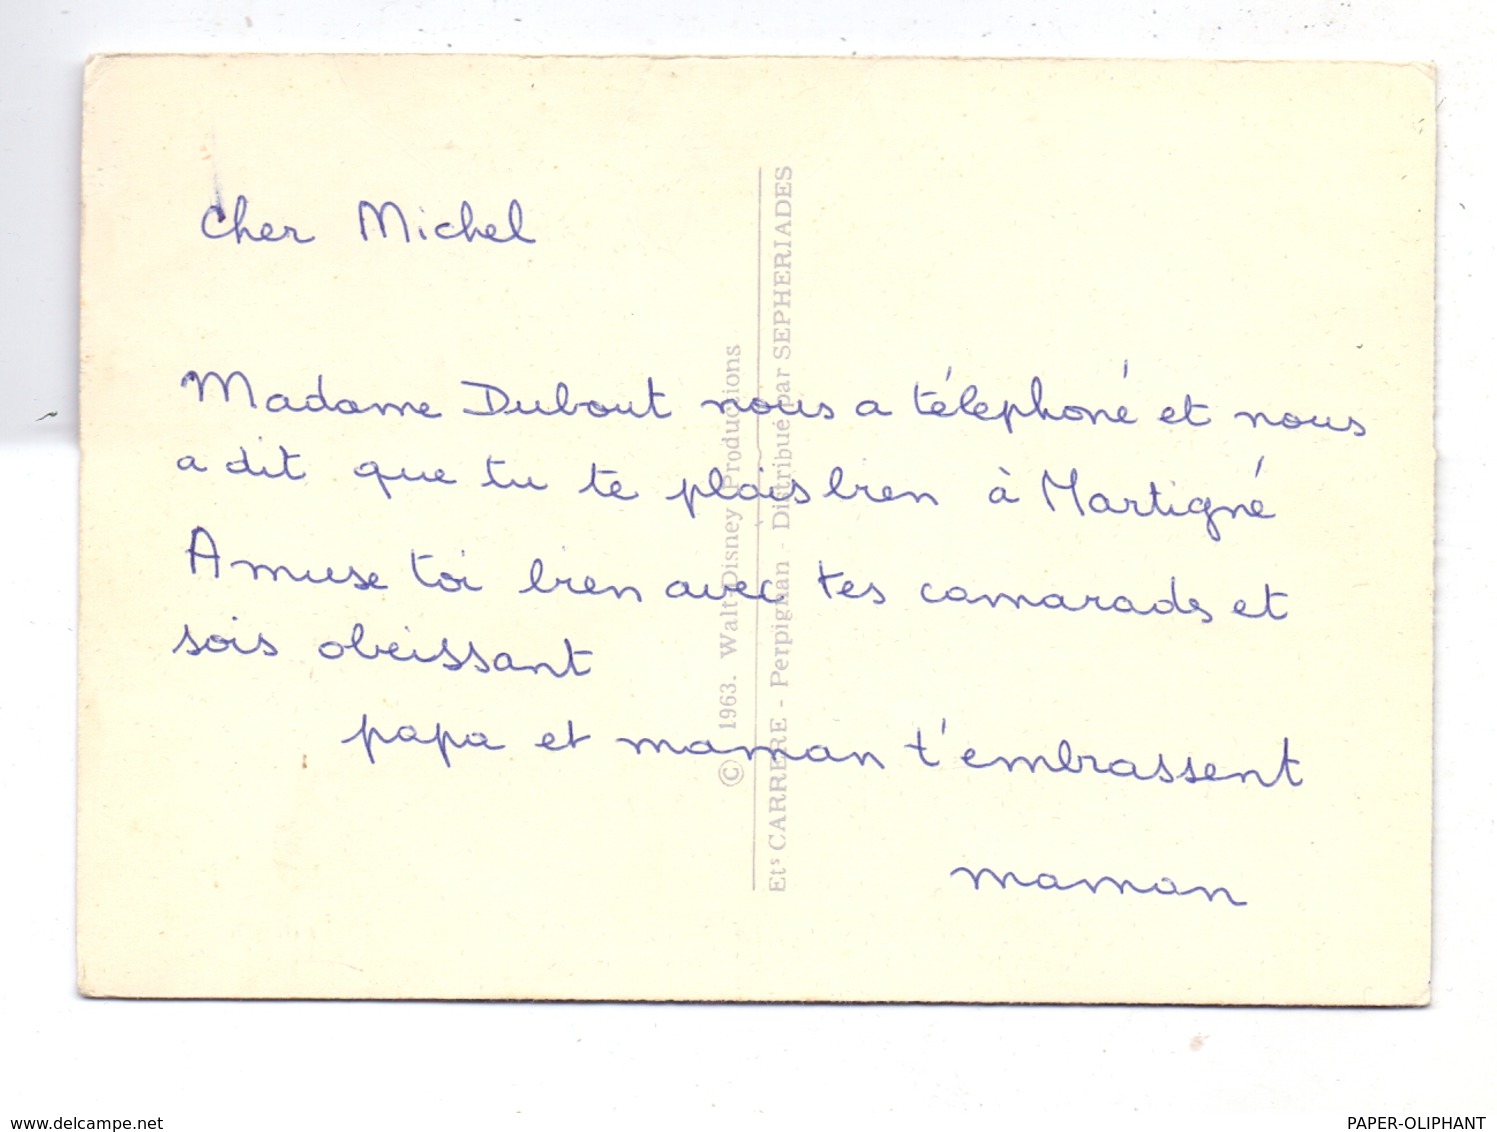 cher Michel
Madame Dubout nous a téléphoné et nous
a dit que tu te plais bien à Martigné
Amuse toi bien avec tes camarads et
sois obéissant
papa et maman t'embrassent
maman
© 1963. Walt Disney Productions
Ets CARRERE - Perpignan - Distribué par SEPHERIADES
www.delcampe.net
PAPER-OLIPHANT